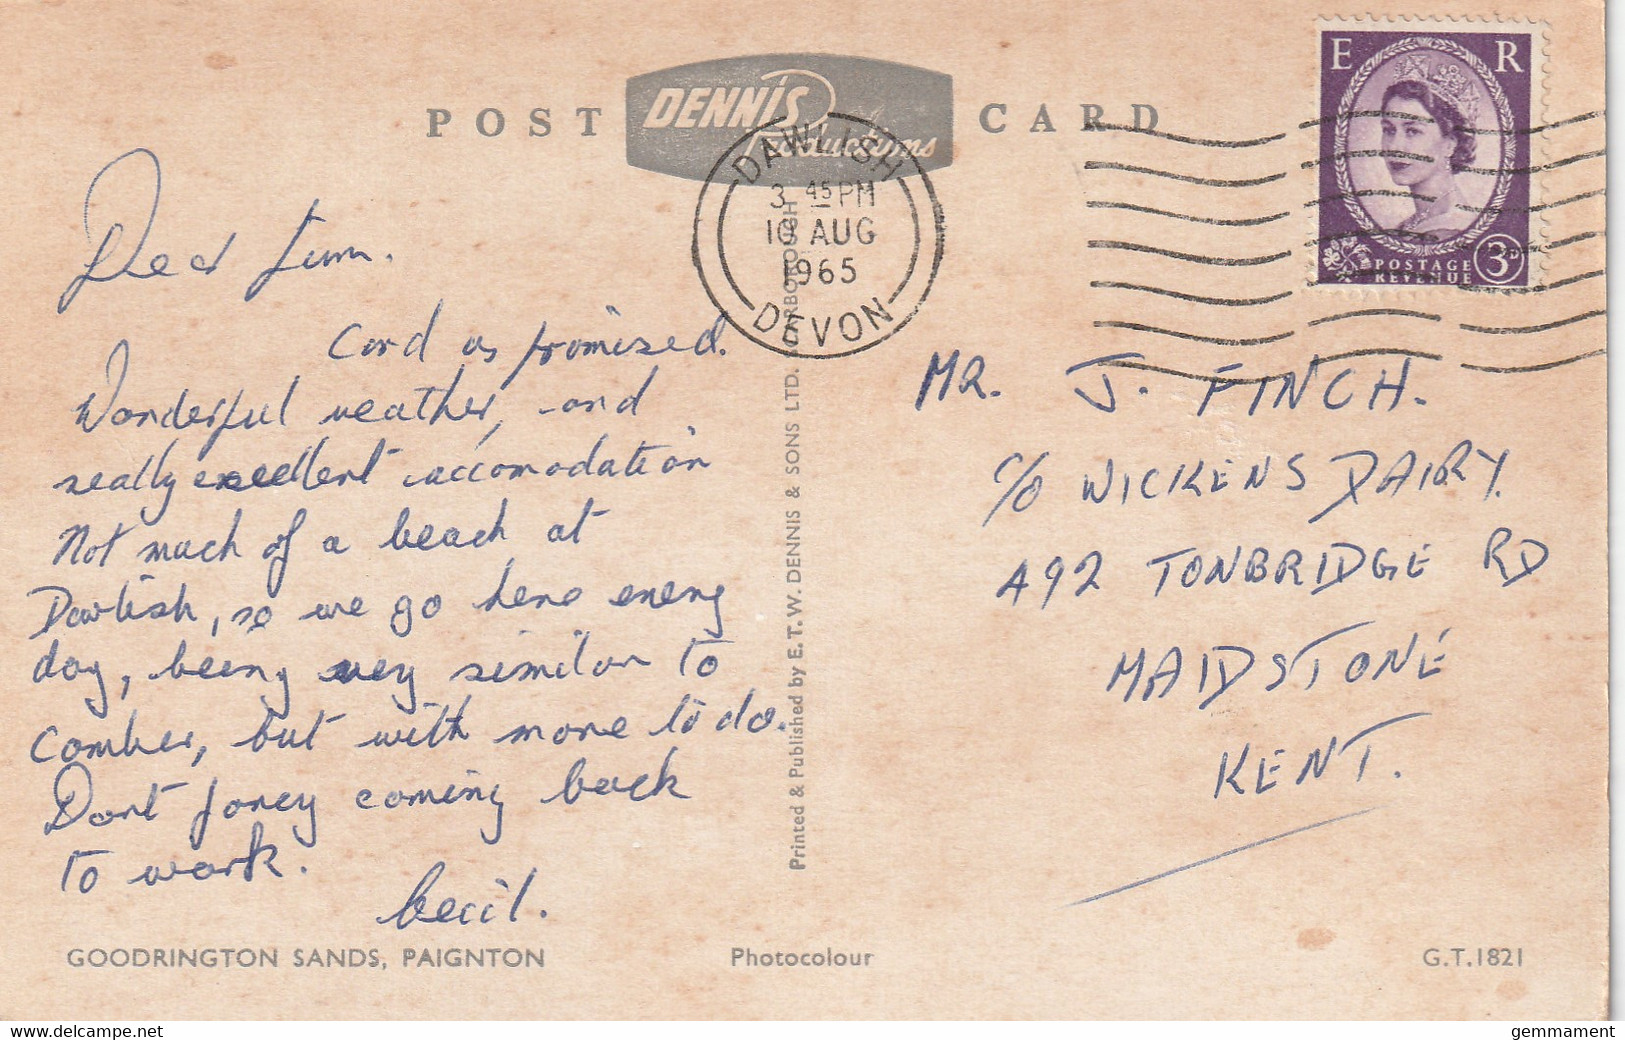 POST CARD
DENNIS
Productions
DAWLISH
3 45 PM
10 AUG
1965
DEVON
E R
POSTAGE
REVENUE
3D
Dear Jum.
Card as promised.
Wonderful weather, and
really excellent accomodation
Not much of a beach at
Dawlish, so we go here every
day, being very similar to
Camber, but with more to do.
Dont fancy coming back
to work.
Cecil.
Printed & Published by E. T. W. DENNIS & SONS LTD. SCARBOROUGH
MR. J. FINCH.
C/O WICKENS DAIRY.
492 TONBRIDGE RD
MAIDSTONE
KENT.
GOODRINGTON SANDS, PAIGNTON
Photocolour
G.T.1821
www.delcampe.net
gemmament